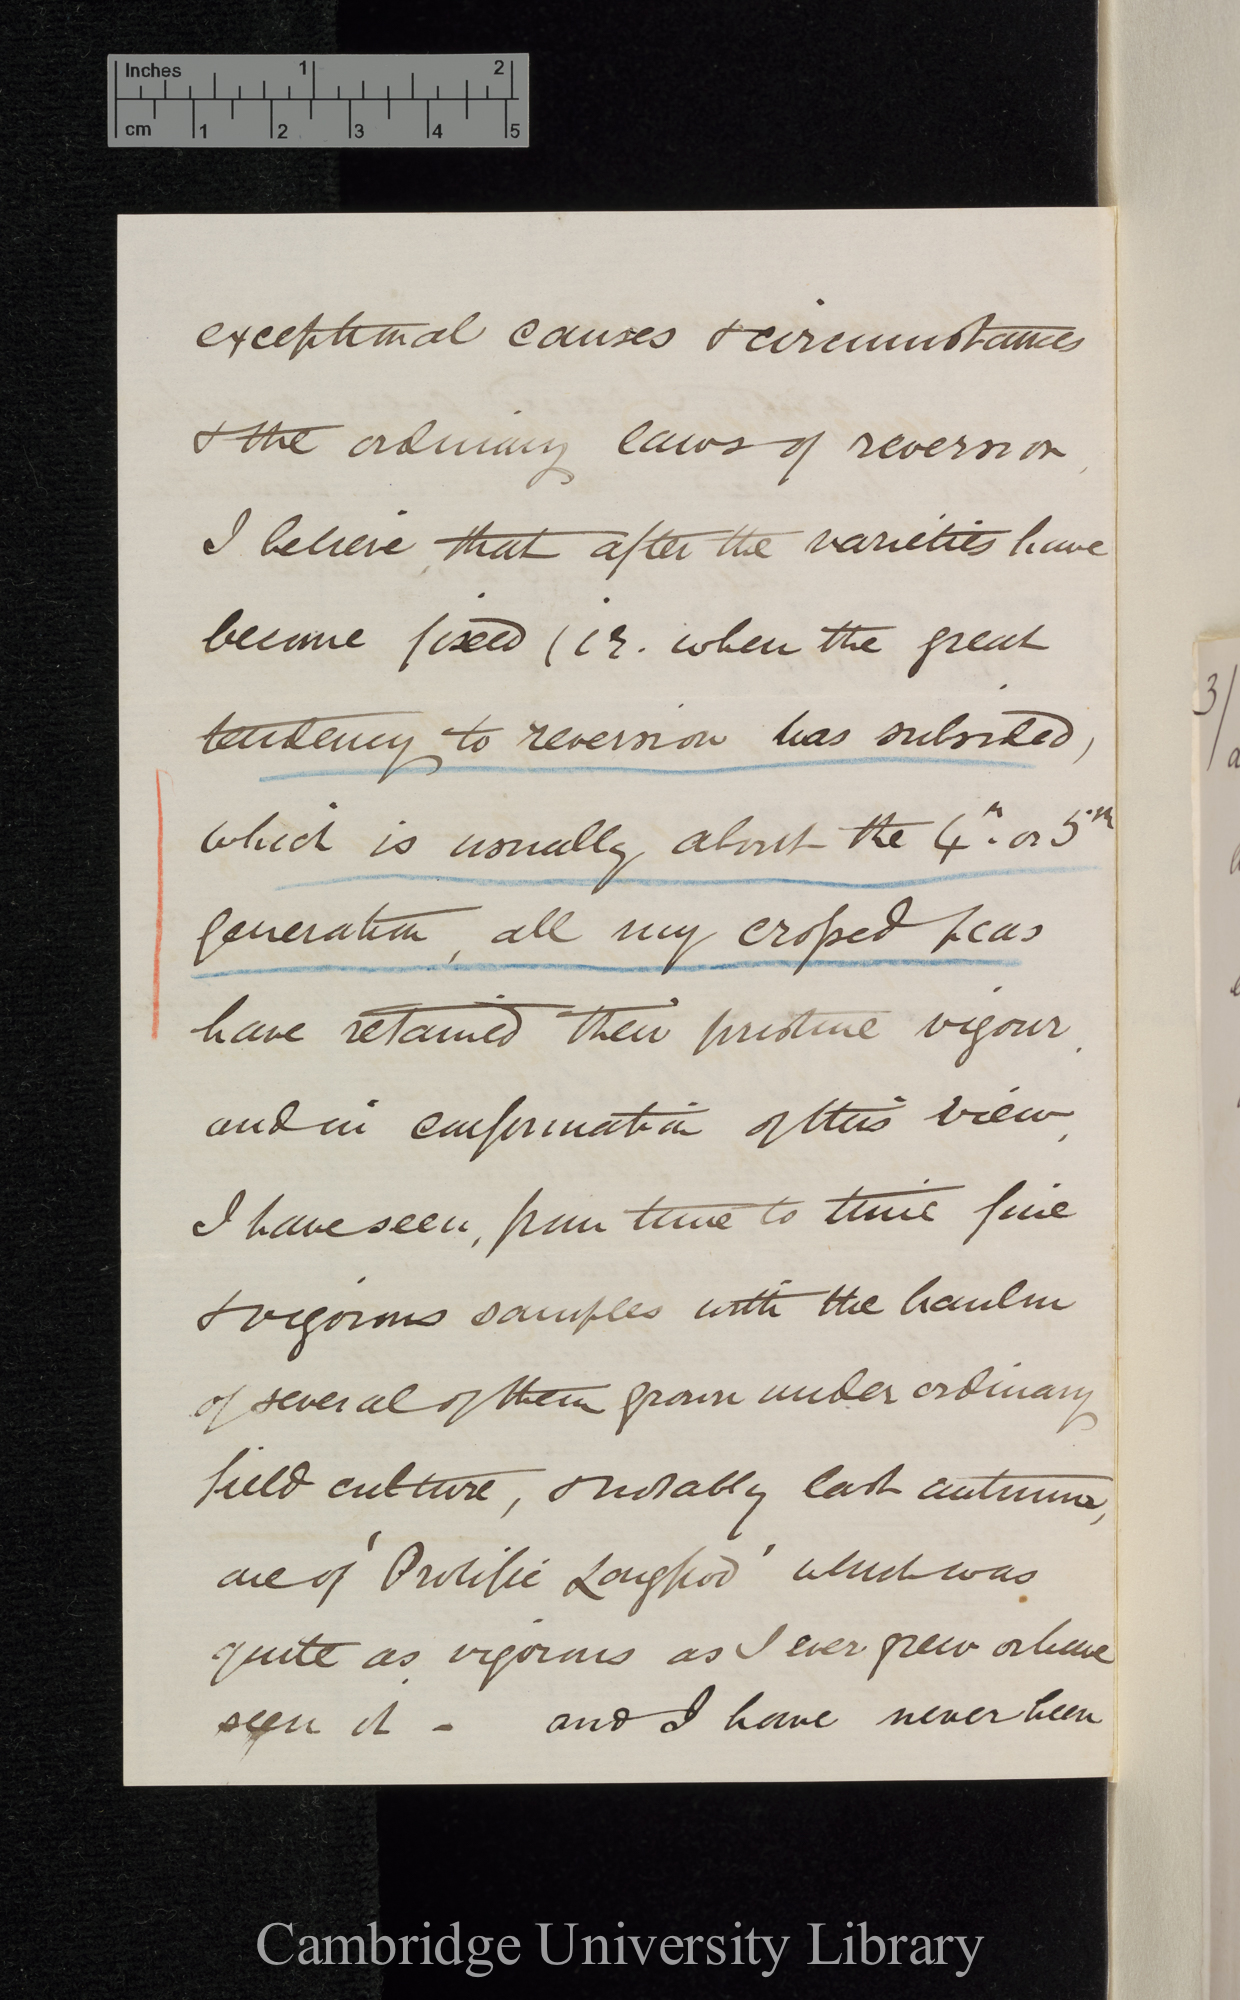 Inches 1 2
cm 1 2 3 4 5
exceptional causes & circumstances
& the ordinary laws of reversion,
I believe, that after the varieties have
become fixed (i e. when the great
tendency to reversion has subsided,
which is usually about the 4th. or 5th
generation, all my crossed peas
have retained their pristine vigour,
and in confirmation of this view,
I have seen, from time to time fine
& vigorous samples with the haulm
of several of them grown under ordinary
field culture, & notably last autumn,
one of 'Prolific Longpod' which was
quite as vigorous as I ever grew or have
seen it - and I have never been
3/
Cambridge University Library